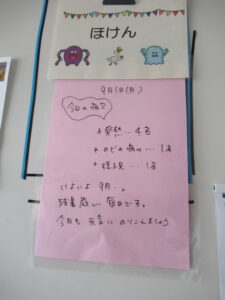 ほけん
9月1日(月)
今日の病欠
*発熱…4名
*のどの痛み…1名
*様子見…1名
いよいよ9月…。
残暑厳しい毎日です。
今月も元気にのりこえましょう